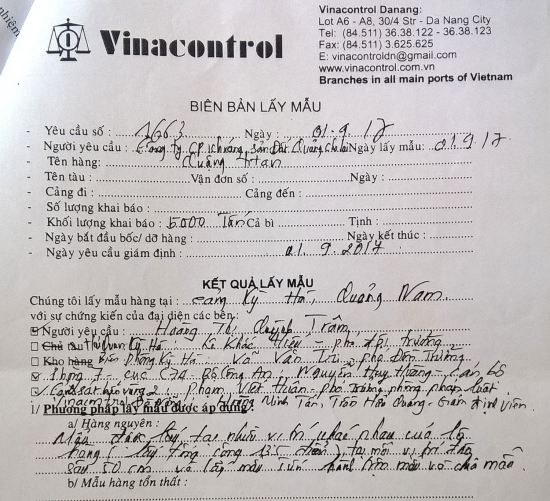 Vinacontrol
Vinacontrol Danang:
Lot A6 - A8, 30/4 Str - Da Nang City
Tel: (84.511) 36.38.122 - 36.38.123
Fax: (84.511) 3.625.625
E: vinacontroldn@gmail.com
www.vinacontrol.com.vn
Branches in all main ports of Vietnam
BIÊN BẢN LẤY MẪU
- Yêu cầu số : 1663 Ngày : 01.9.17
- Người yêu cầu : Công ty CP khoáng sản Đất Quảng Chu Lai Ngày lấy mẫu: 01.9.17
- Tên hàng: Quặng titan
- Tên tàu : Vận đơn số : Ngày :
- Cảng đi : Cảng đến :
- Số lượng khai báo :
- Khối lượng khai báo : 5000 Tấn Cả bì : Tịnh :
- Ngày bắt đầu bốc/ dỡ hàng : Ngày kết thúc :
- Ngày yêu cầu giám định : 01.9.2017
KẾT QUẢ LẤY MẪU
Chúng tôi lấy mẫu hàng tại : Cảng Kỳ Hà, Quảng Nam
với sự chứng kiến của đại diện các bên:
Người yêu cầu : Hoàng Thị Quỳnh Trâm
Chủ tàu Hải quan Kỳ Hà : Khắc - phó đội trưởng
Kho hàng phòng Kỳ Hà - Võ Văn - phó Đồn Trưởng
Phòng 7 - cục C74 - Bộ Công An : Nguyễn Huy - Cán bộ
Cảnh sát biển vùng 2 : Phạm Viết - phó trưởng phòng pháp luật
Minh Tân, Trần Quang - Giám định viên
1/ Phương pháp lấy mẫu được áp dụng :
a/ Hàng nguyên :
Mẫu được lấy tại nhiều vị trí khác nhau của lô
hàng ( lấy tại mỗi vị trí
sâu 50 cm và lấy mẫu mẫu và chia mẫu
b/ Mẫu hàng tổn thất :